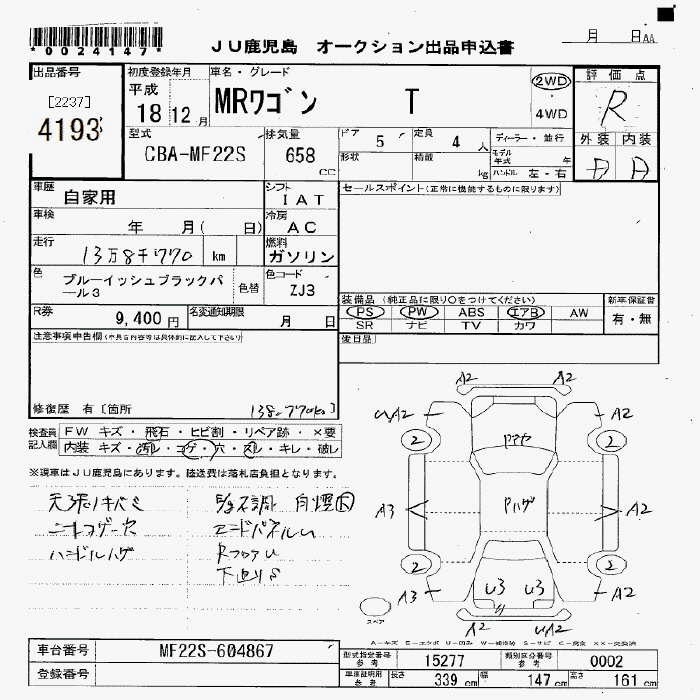 *0024147*
JU鹿児島 オークション出品申込書
月 日AA
出品番号
[2237]
4193
初度登録年月
平成
18 12月
車名・グレード
MRワゴン T
2WD
・
4WD
評価点
R
型式
CBA-MF22S
排気量
658 cc
ドア 5
定員 4 人
形状
積載 kg
ディーラー・並行
モデル年式 年
ハンドル 左・右
外装 内装
D D
車歴
自家用
シフト
IAT
セールスポイント(正常に機能するものに限ります)
車検
年 月( 日)
冷房
AC
走行
13万8千770 km
燃料
ガソリン
色
ブルーイッシュブラックパール3
色替
色コード
ZJ3
R券
9,400 円
名変通知期限
月 日
装備品 (純正品に限り○をつけてください)
PS PW ABS エアB AW
SR ナビ TV カワ
新車保証書
有・無
後日品
注意事項申告欄
修復歴 有 [箇所
138,770km]
検査員記入欄
FW キズ・飛石・ヒビ割・リペア跡・×要
内装 キズ・汚れ・コゲ・穴・スレ・キレ・破レ
※現車はJU鹿児島にあります。陸送費は落札店負担となります。
ハンドルハゲ
エンドパネルU
RフロアU
下廻りS
A2 A2
A2 A2
2 2
Pハゲ
A3 A2
2 2
U3 U3
A3 A2
A2 UA2
スペア
車台番号 MF22S-604867
登録番号
型式指定番号 参考 15277
類別区分番号 参考 0002
車庫証明用 参考
長さ 339 cm
幅 147 cm
高さ 161 cm